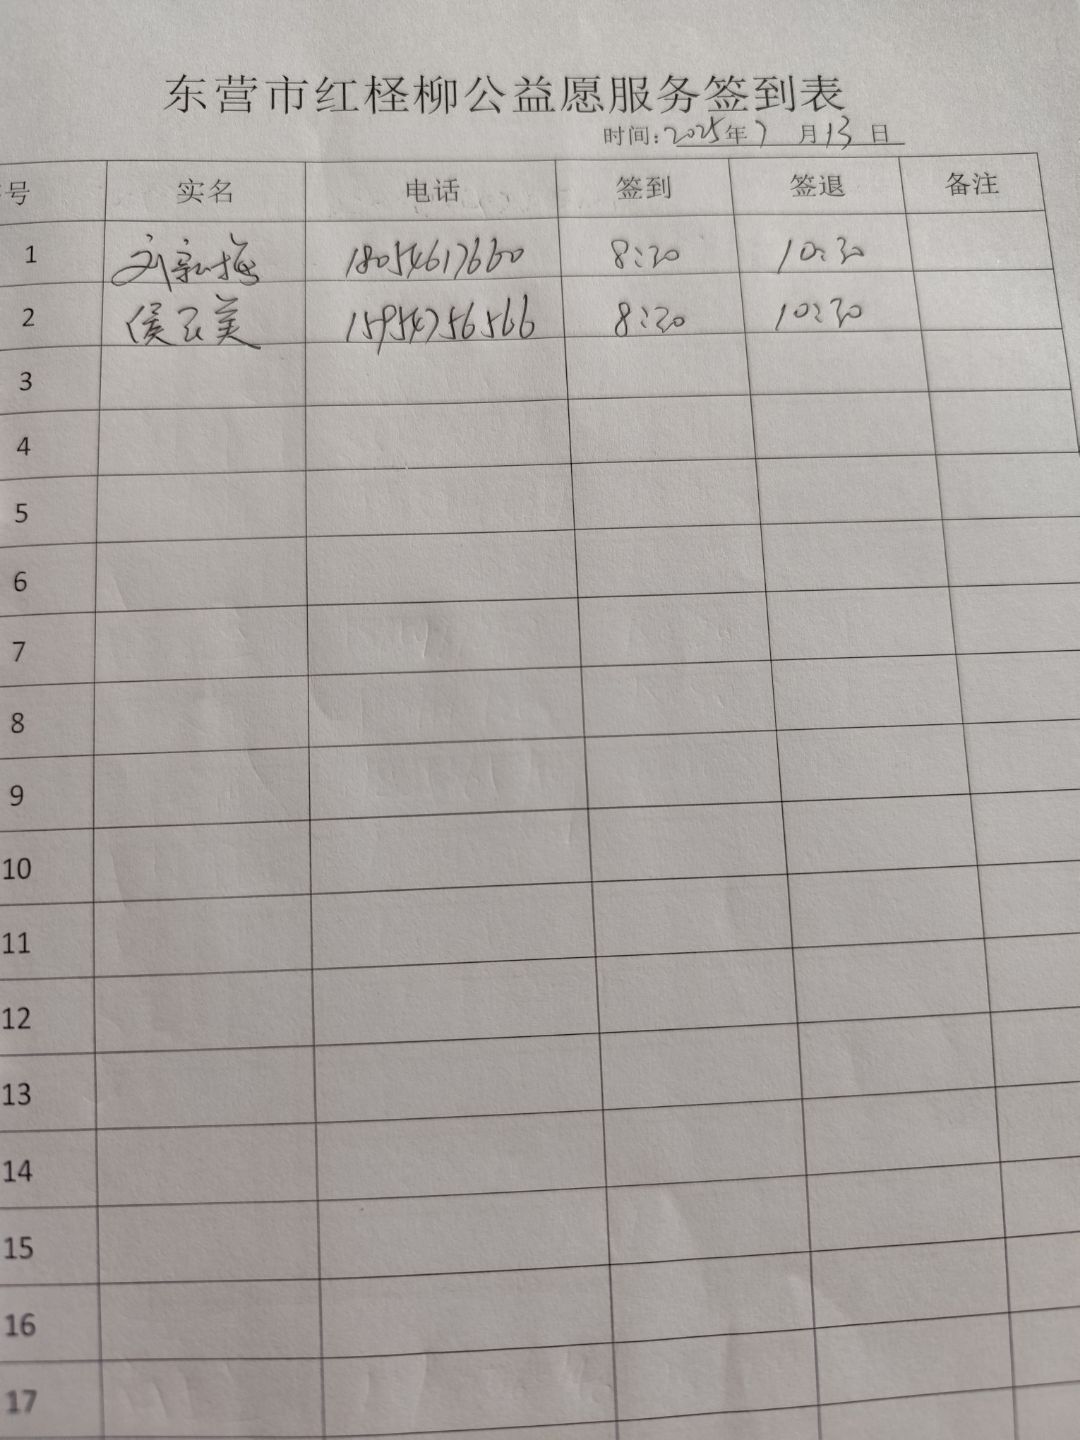 东营市红柽柳公益愿服务签到表
时间:2025年7月13日
号 实名 电话 签到 签退 备注
1 刘新梅 18054617660 8:30 10:30
2 侯云美 15954756566 8:30 10:30
3
4
5
6
7
8
9
10
11
12
13
14
15
16
17